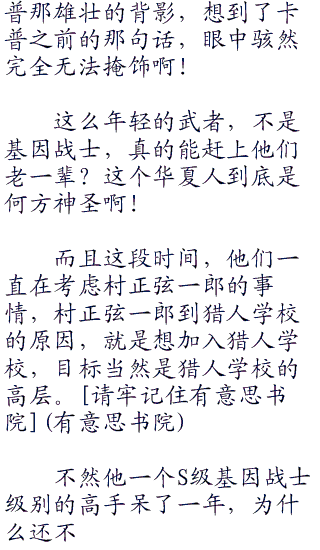 普那雄壮的背影，想到了卡
普之前的那句话，眼中骇然
完全无法掩饰啊！
这么年轻的武者，不是
基因战士，真的能赶上他们
老一辈？这个华夏人到底是
何方神圣啊！
而且这段时间，他们一
直在考虑村正弦一郎的事
情，村正弦一郎到猎人学校
的原因，就是想加入猎人学
校，目标当然是猎人学校的
高层。[请牢记住有意思书
院](有意思书院)
不然他一个S级基因战士
级别的高手呆了一年，为什
么还不